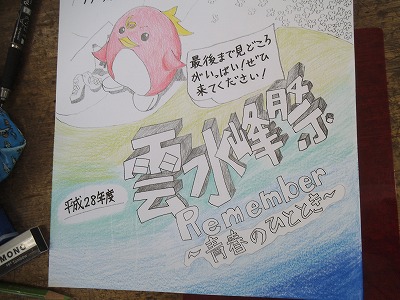 最後まで見どころ
がいっぱい！ぜひ
来てください！
雲水峰祭
平成28年度
Remember
～青春のひととき～
MONO